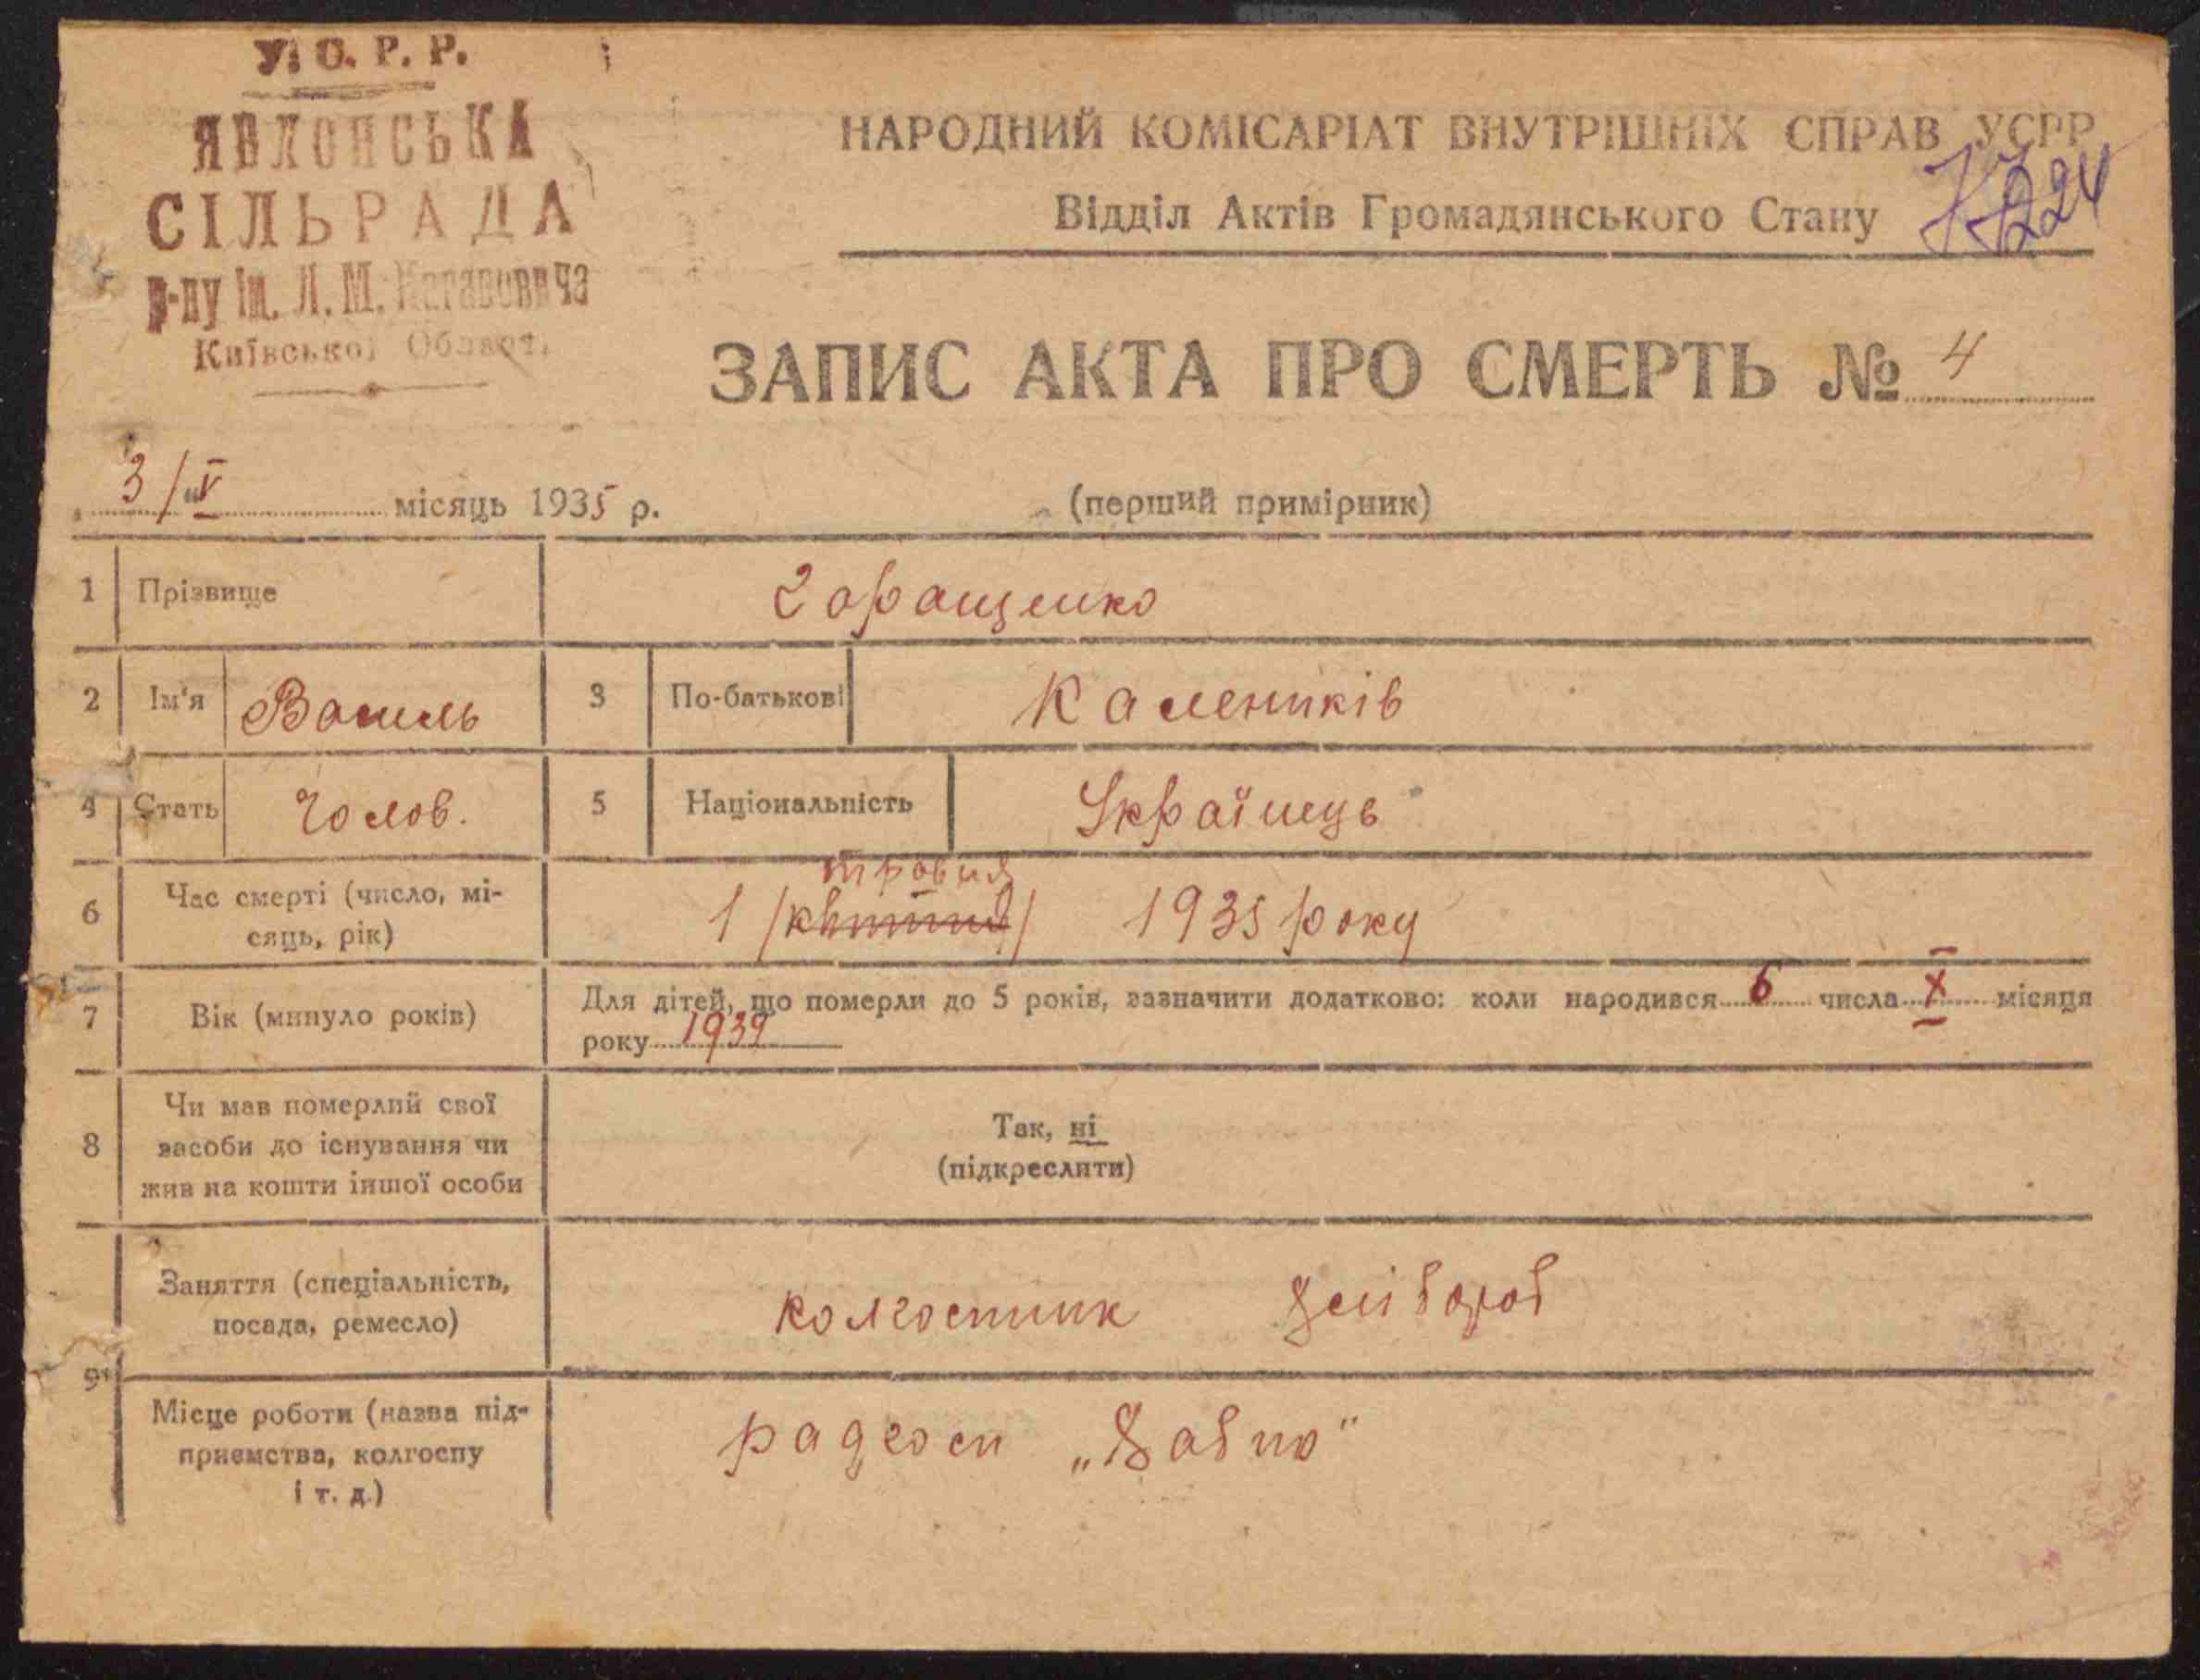 У. С. Р. Р.
ЯБЛОНСЬКА
СІЛЬРАДА
р-ну ім. Л. М. Кагановича
Київської Област.
НАРОДНИЙ КОМІСАРІАТ ВНУТРІШНІХ СПРАВ УСРР
Відділ Актів Громадянського Стану
224
ЗАПИС АКТА ПРО СМЕРТЬ № 4
3/V місяць 1935 р.
(перший примірник)
1 Прізвище Геращенко
2 Ім'я Василь 3 По-батькові Калеників
4 Стать Чолов. 5 Національність Українець
травня
6 Час смерті (число, мі-
сяць, рік) 1 /квітня/ 1935 року
7 Вік (минуло років) Для дітей, що померли до 5 років, зазначити додатково: коли народився 6 числа X місяця
року 1934
Чи мав померлий свої
8 засоби до існування чи
жив на кошти іншої особи
Так, ні
(підкреслити)
9 Заняття (спеціальність,
посада, ремесло) колгоспник
Місце роботи (назва під-
приємства, колгоспу
і т. д.)
радгосп